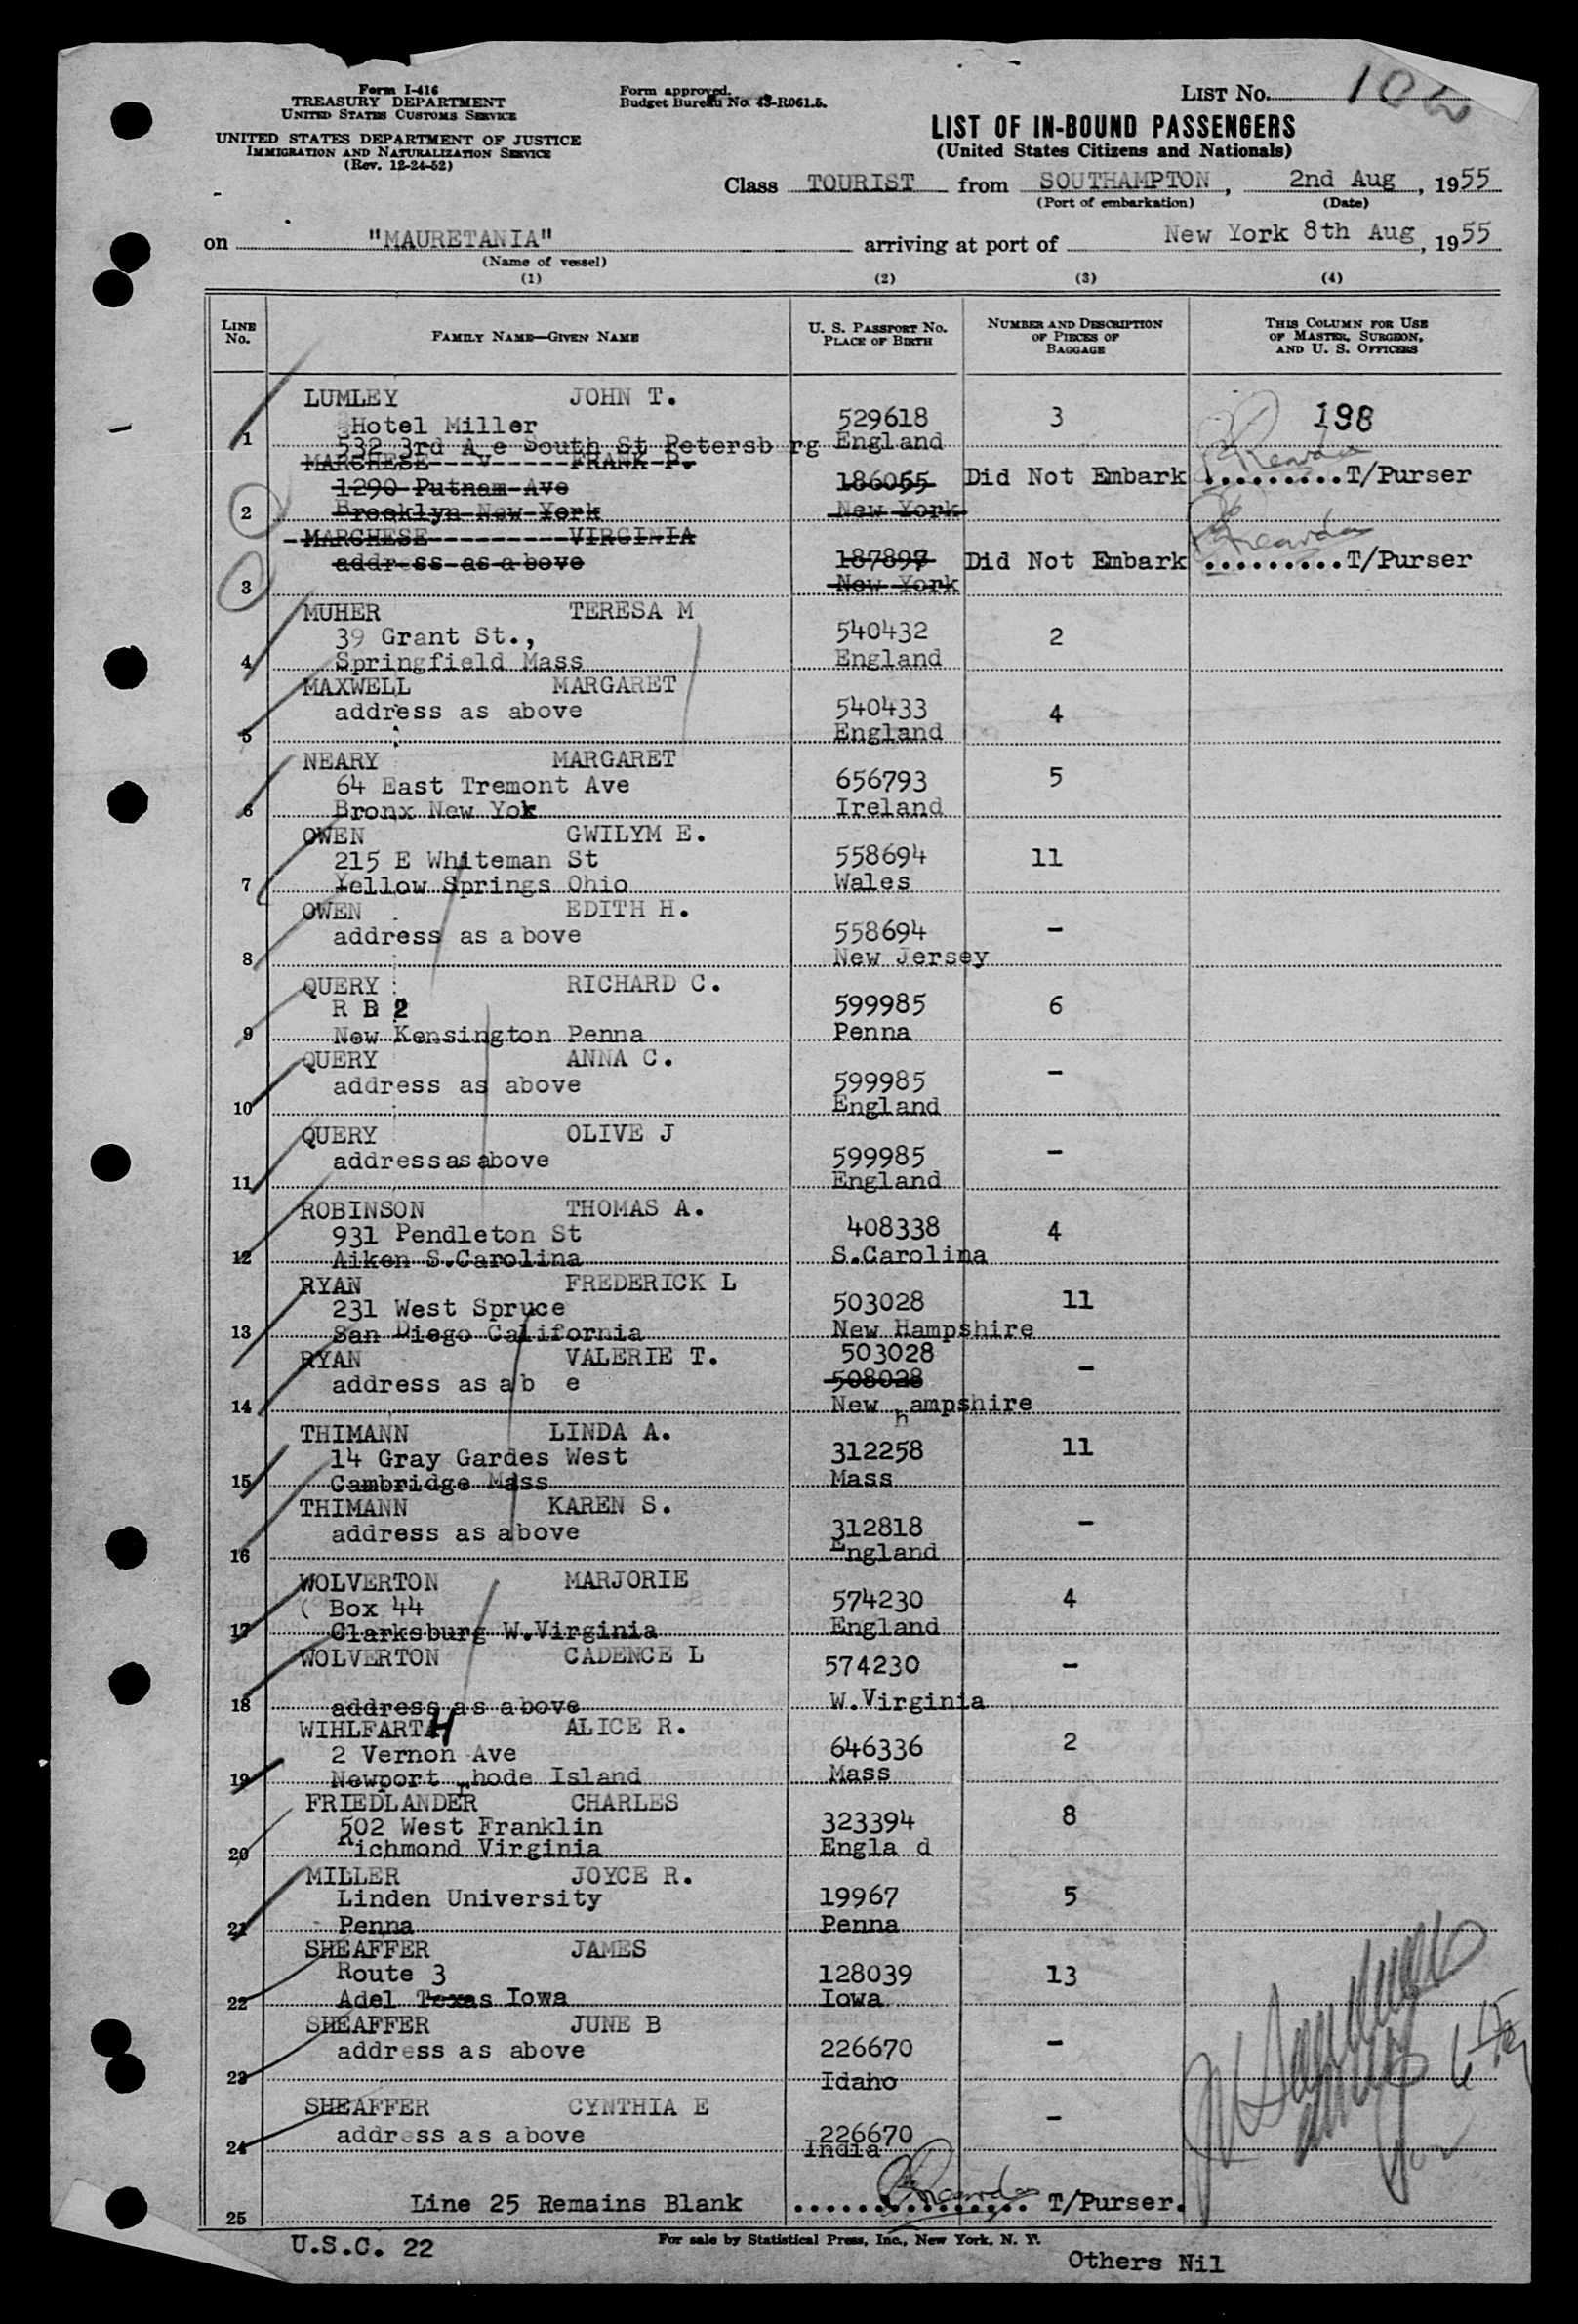 Form I-416
TREASURY DEPARTMENT
UNITED STATES CUSTOMS SERVICE
UNITED STATES DEPARTMENT OF JUSTICE
IMMIGRATION AND NATURALIZATION SERVICE
(Rev. 12-24-52)
Form approved.
Budget Bureau No. 43-R061.5.
LIST No.
LIST OF IN-BOUND PASSENGERS
(United States Citizens and Nationals)
Class TOURIST from SOUTHAMPTON, 2nd Aug, 1955
(Port of embarkation) (Date)
on "MAURETANIA" arriving at port of New York 8th Aug, 1955
(Name of vessel)
(1) (2) (3) (4)
LINE No. FAMILY NAME—GIVEN NAME U. S. PASSPORT NO. PLACE OF BIRTH NUMBER AND DESCRIPTION OF PIECES OF BAGGAGE THIS COLUMN FOR USE OF MASTER, SURGEON, AND U. S. OFFICERS
LUMLEY JOHN T.
Hotel Miller 529618 3 198
1 532 3rd A e South St Petersb rg England
MARCHESE FRANK P.
1290 Putnam Ave 186055 Did Not Embark .........T/Purser
2 Brooklyn New York New York
MARCHESE VIRGINIA
address as a bove 187897 Did Not Embark .........T/Purser
3 New York
MUHER TERESA M
39 Grant St., 540432 2
4 Springfield Mass England
MAXWELL MARGARET
address as above 540433 4
5 England
NEARY MARGARET
64 East Tremont Ave 656793 5
6 Bronx New Yok Ireland
OWEN GWILYM E.
215 E Whiteman St 558694 11
7 Yellow Springs Ohio Wales
OWEN EDITH H.
address as a bove 558694 -
8 New Jersey
QUERY RICHARD C.
R D 2 599985 6
9 New Kensington Penna Penna
QUERY ANNA C.
address as above 599985 -
10 England
QUERY OLIVE J
address as above 599985 -
11 England
ROBINSON THOMAS A.
931 Pendleton St 408338 4
12 Aiken S.Carolina S.Carolina
RYAN FREDERICK L
231 West Spruce 503028 11
13 San Diego California New Hampshire
RYAN VALERIE T. 503028
address as a b e 508028 -
14 New hampshire
THIMANN LINDA A.
14 Gray Gardes West 312258 11
15 Cambridge Mass Mass
THIMANN KAREN S.
address as above 312818 -
16 England
WOLVERTON MARJORIE
( Box 44 574230 4
17 Clarksburg W.Virginia England
WOLVERTON CADENCE L 574230 -
18 address as above W.Virginia
WIHLFARTH ALICE R.
2 Vernon Ave 646336 2
19 Newport rhode Island Mass
FRIEDLANDER CHARLES
502 West Franklin 323394 8
20 Richmond Virginia Engla d
MILLER JOYCE R.
Linden University 19967 5
21 Penna Penna
SHEAFFER JAMES
Route 3 128039 13
22 Adel Texas Iowa Iowa
SHEAFFER JUNE B
address as above 226670 -
23 Idaho
SHEAFFER CYNTHIA E
address as above 226670 -
24 India
25 Line 25 Remains Blank ............... T/Purser.
U.S.C. 22
For sale by Statistical Press, Inc., New York, N. Y.
Others Nil